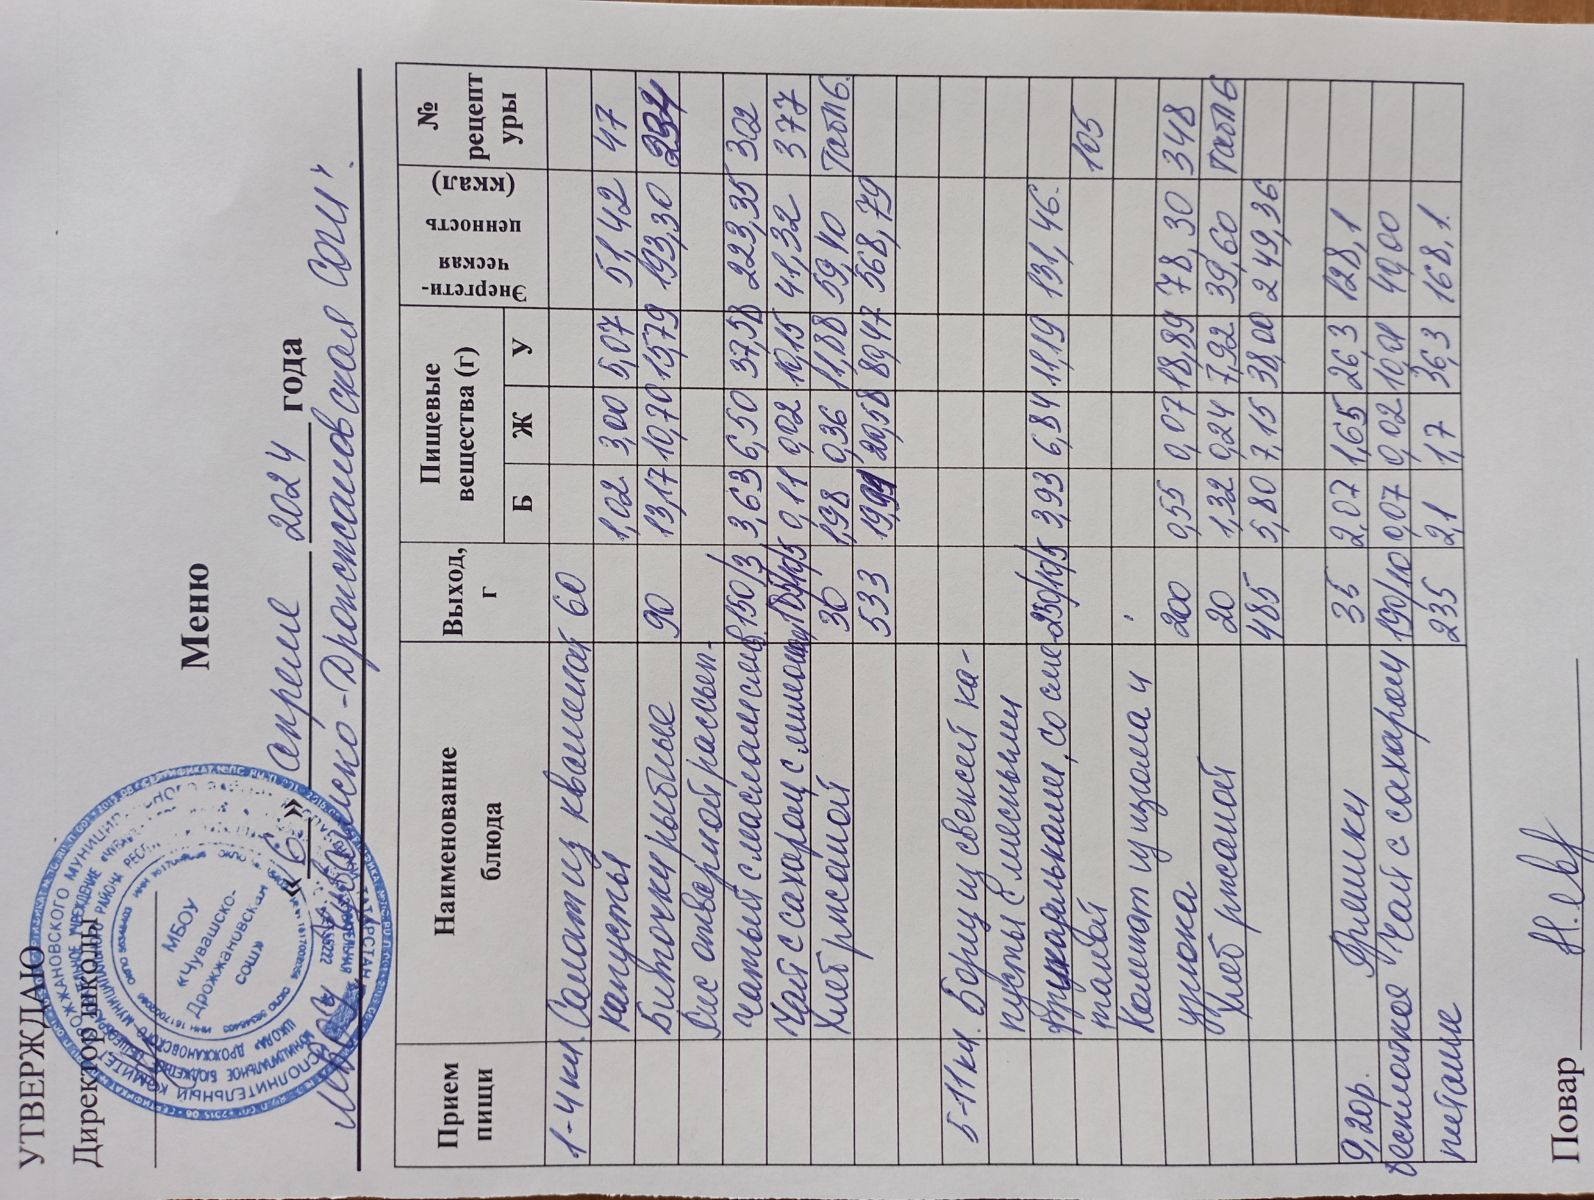 УТВЕРЖДАЮ
Директор школы
МБОУ
«Чувашско-
Дрожжановская
СОШ»
Меню
«16» апреля 2024 года
МБОУ "Чувашско-Дрожжановская СОШ".
Прием пищи Наименование блюда Выход, г Пищевые вещества (г) Энергети-ческая ценность (ккал) № рецептуры
Б Ж У
1-4 кл. Салат из квашеной 60
капусты 1,02 3,00 5,07 51,42 47
Биточки рыбные 90 13,17 10,70 15,79 193,30 234
Рис отварной рассып-
чатый с маслом слив. 150/3 3,63 6,50 37,58 223,35 302
Чай с сахаром с лимоном 0,11 0,02 10,15 41,32 377
Хлеб ржаной 30 1,98 0,36 11,88 59,40 Табл6.
533 19,91 20,58 80,47 568,79
5-11 кл. Борщ из свежей ка-
пусты с мясными
фрикадельками, со сме- 250/10/5 3,93 6,84 11,19 131,46.
таной 105
Компот из изюма и
урюка 200 0,55 0,07 18,89 78,30 348
Хлеб ржаной 20 1,32 0,24 7,92 39,60 Табл6
485 5,80 7,15 38,00 249,36
9,20р. Фришки 35 2,07 1,65 26,3 128,1
бесплатное Чай с сахаром 190/10 0,07 0,02 10,01 40,00
питание 235 2,1 1,7 36,3 168,1.
Повар